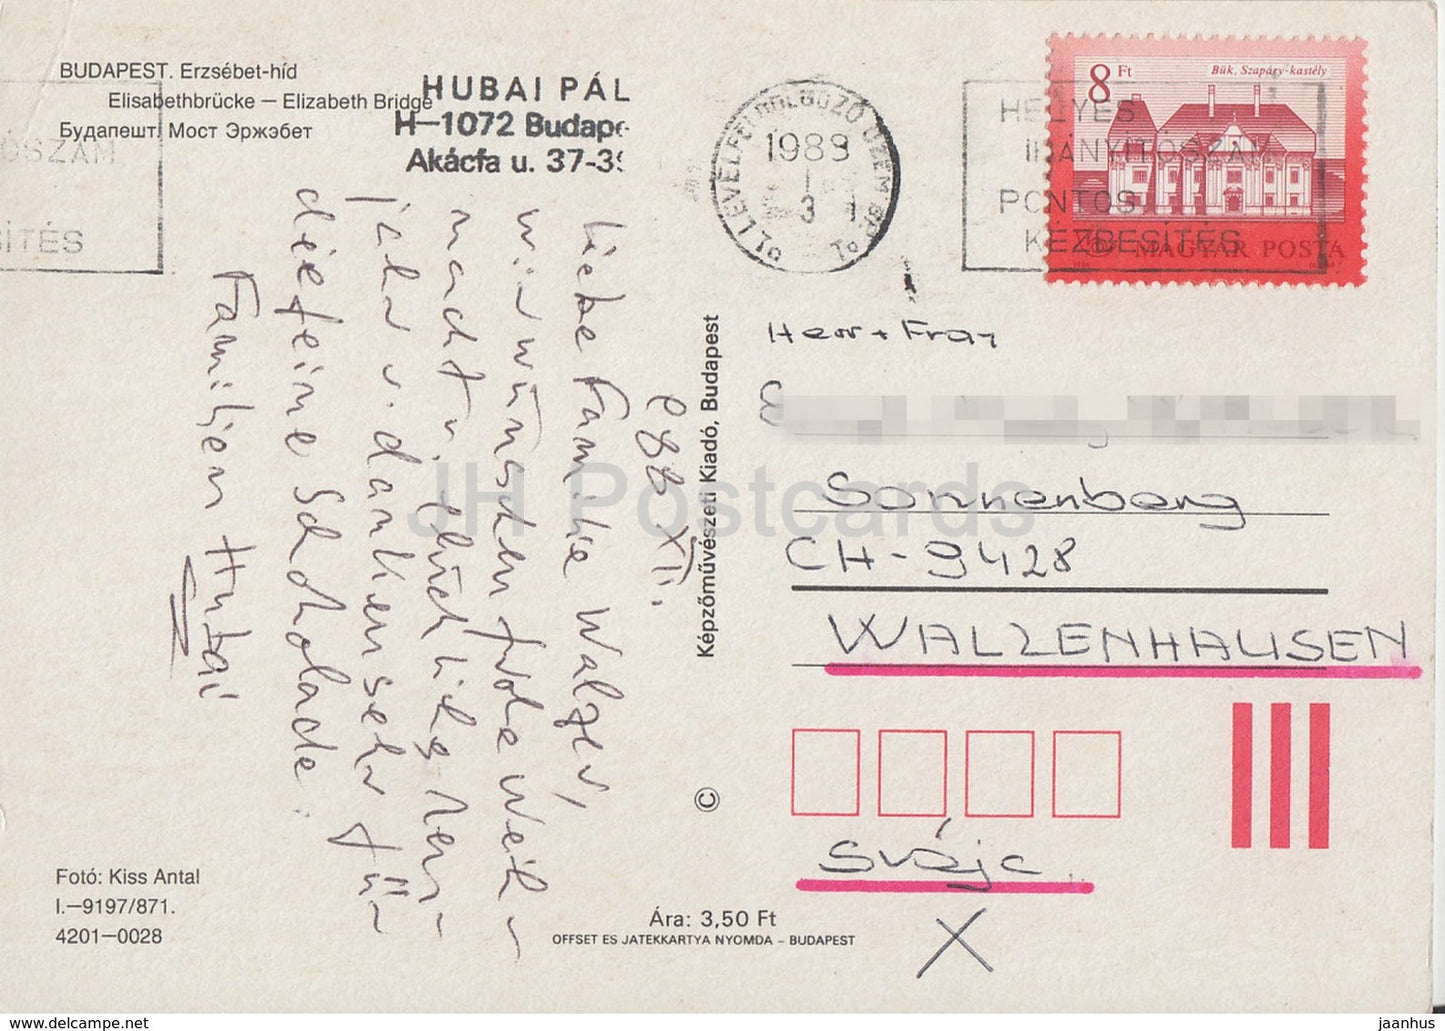 BUDAPEST. Erzsébet-híd
Elisabethbrücke — Elizabeth Bridge
Будапешт. Мост Эржэбет
HUBAI PÁL
H—1072 Budape
Akácfa u. 37-39
ÓSZÁM
SÍTÉS
LEVÉLFELDOLGOZÓ ÜZEM BP.
1988
3
70
HELYES
IRÁNYÍTÓSZÁM
PONTOS
KÉZBESÍTÉS
8 Ft
Bük, Szapáry-kastély
MAGYAR POSTA
988 XII.
Liebe Familie Walzer,
wir wünschen frohe Weih-
nacht u. glückliches neu-
jahr u. danken sehr für
die feine Schokolade.
Familien Hubai
Képzőművészeti Kiadó, Budapest
©
Herr + Frau
Sonnenberg
CH-9428
WALZENHAUSEN
Svájc
X
Fotó: Kiss Antal
I.—9197/871.
4201—0028
Ára: 3,50 Ft
OFFSET ES JATEKKARTYA NYOMDA – BUDAPEST
JH Postcards
www.delcampe.net
jaanhus